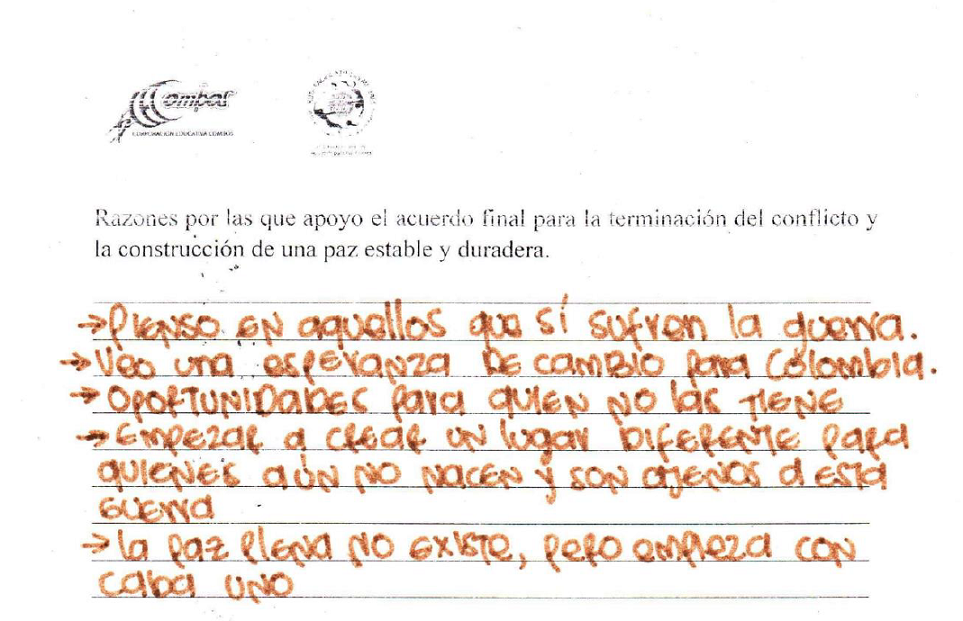 Combos
CORPORACIÓN EDUCATIVA COMBOS
Razones por las que apoyo el acuerdo final para la terminación del conflicto y
la construcción de una paz estable y duradera.
→ Pienso en aquellos que sí sufren la guerra.
→ Veo una esperanza de cambio para Colombia.
→ OPORTUNIDADES para quien no las tiene
→ Empezar a crear un lugar diferente para
quienes aún no nacen y son ajenos a esta
guerra
→ la paz plena no existe, pero empieza con
cada uno